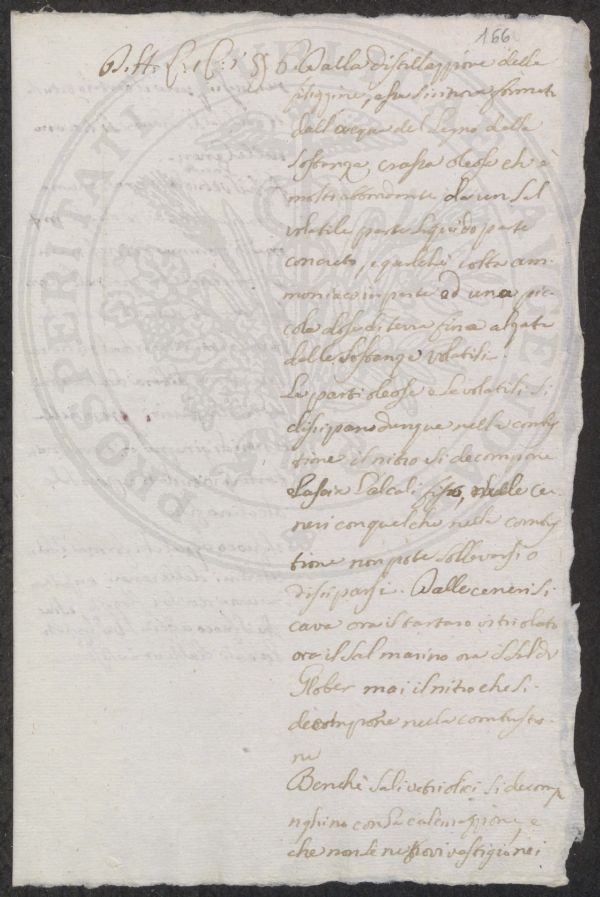 166
Dalla distillazione della
fliggine, essa si trova formata
dall'acqua del legno dalla
sostanza crassa oleosa ch è
molto abbondante da un sal
volatile parte liquido parte
concreto, e qualche volta am-
moniaco in parte ed una pic-
cola dose di terra fina alzata
dalle sostanze volatili.
Le parti oleose e le volatili si
dissipano dunque nella combus
tione il nitro si decompone
e lascia l'alcali fisso, nelle ce-
neri con quel che nella combus
tione non pote sollevarsi o
dissiparsi. Dalle ceneri si
cava ora il tartaro vitriolato
ora il sal marino ora il sal di
Glober mai il nitro che si
decompone nella combustio-
ne
Benchè i sali vitriolici si decomp
nghino con la calcinazione, e
che non se ne trovi vestigio nei
PROSPERITATI PUBLICAE AUGENDAE